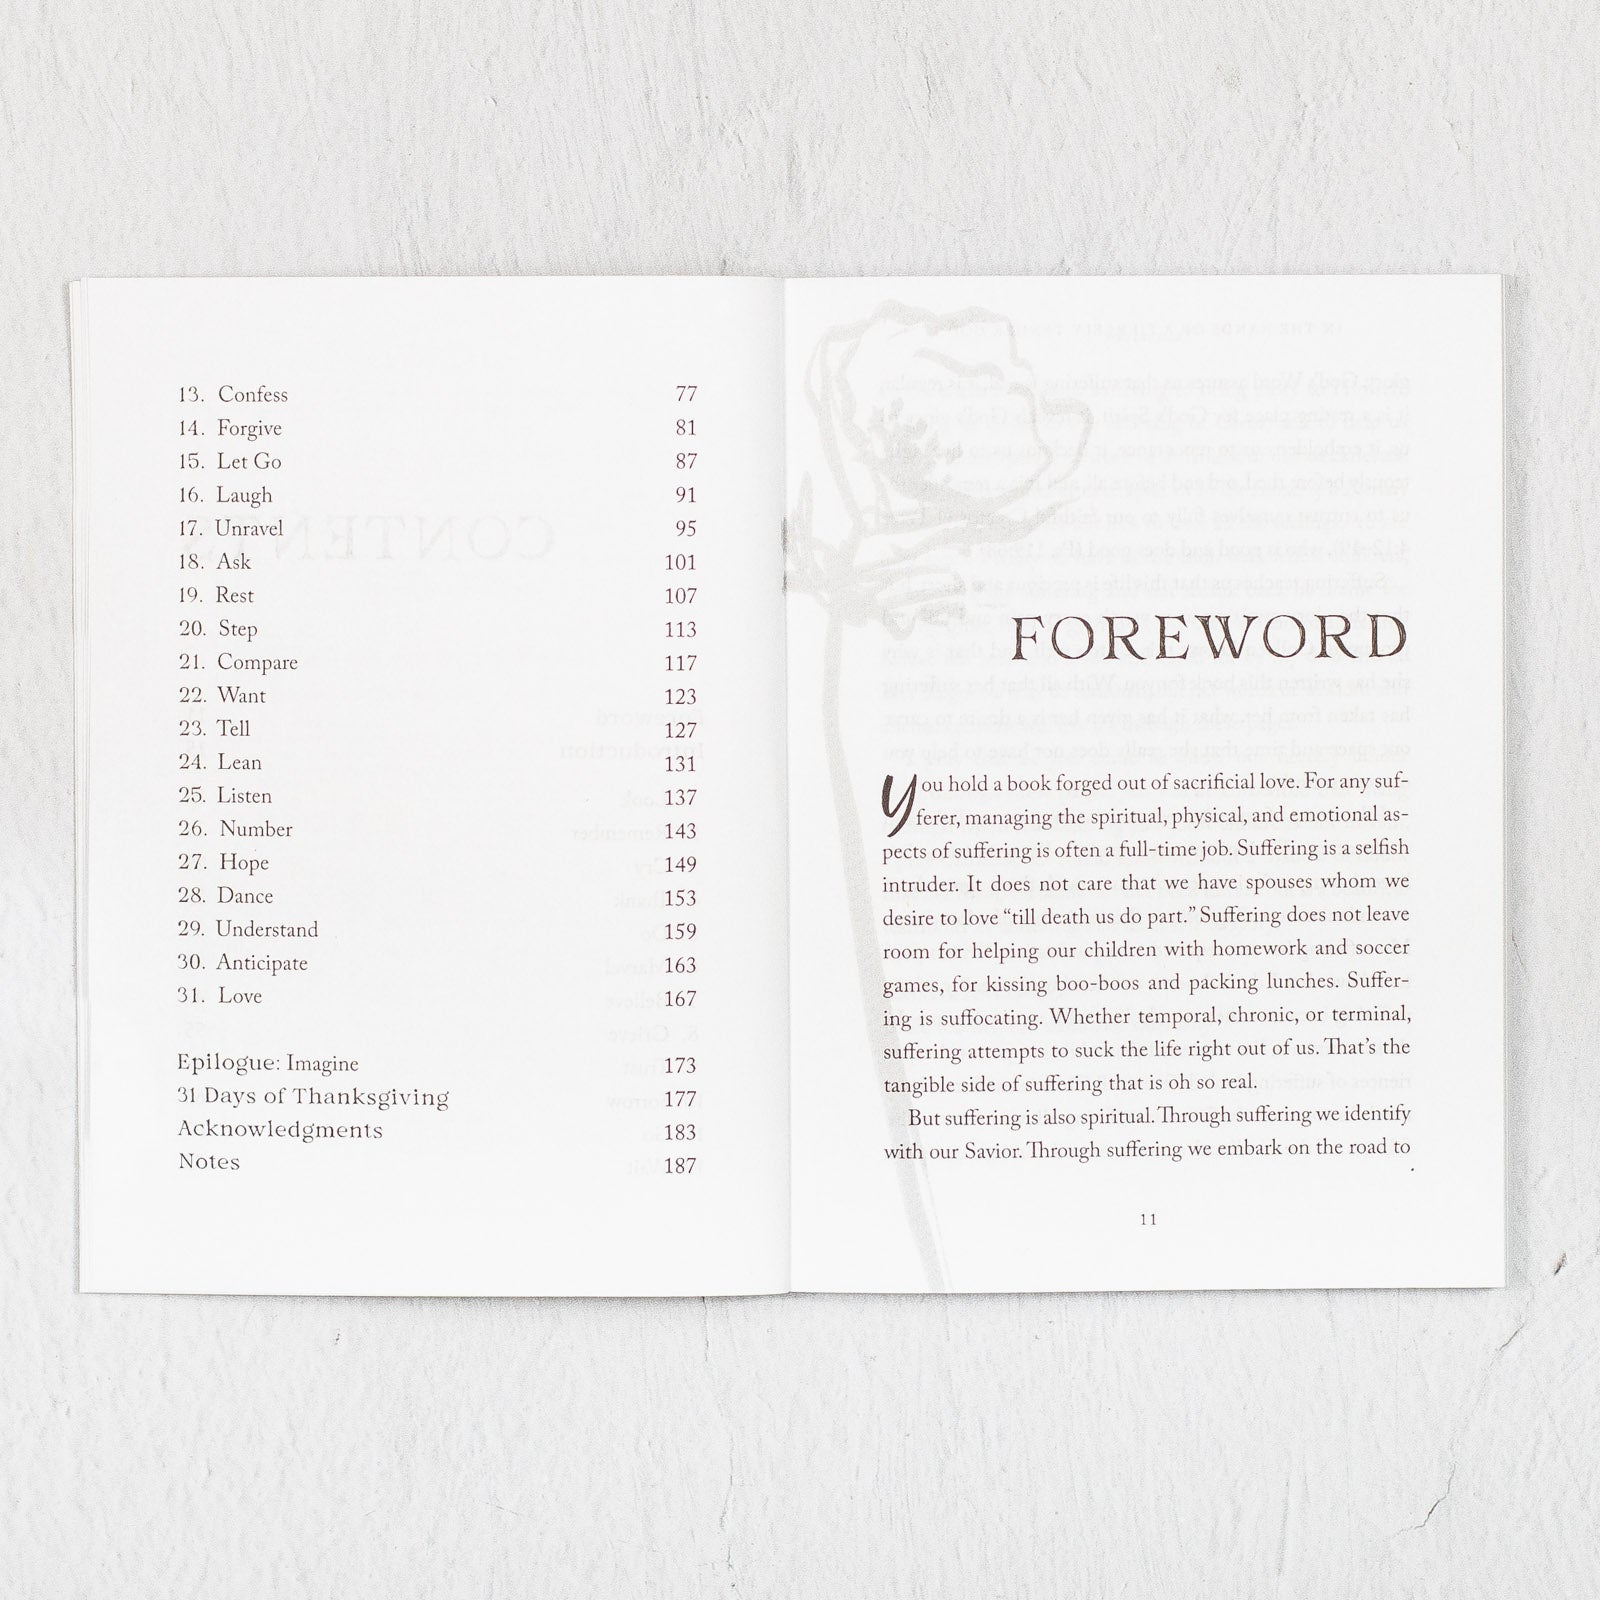 13. Confess 77
14. Forgive 81
15. Let Go 87
16. Laugh 91
17. Unravel 95
18. Ask 101
19. Rest 107
20. Step 113
21. Compare 117
22. Want 123
23. Tell 127
24. Lean 131
25. Listen 137
26. Number 143
27. Hope 149
28. Dance 153
29. Understand 159
30. Anticipate 163
31. Love 167
Epilogue: Imagine 173
31 Days of Thanksgiving 177
Acknowledgments 183
Notes 187
FOREWORD
You hold a book forged out of sacrificial love. For any suf-
ferer, managing the spiritual, physical, and emotional as-
pects of suffering is often a full-time job. Suffering is a selfish
intruder. It does not care that we have spouses whom we
desire to love “till death us do part.” Suffering does not leave
room for helping our children with homework and soccer
games, for kissing boo-boos and packing lunches. Suffer-
ing is suffocating. Whether temporal, chronic, or terminal,
suffering attempts to suck the life right out of us. That’s the
tangible side of suffering that is oh so real.
But suffering is also spiritual. Through suffering we identify
with our Savior. Through suffering we embark on the road to
11